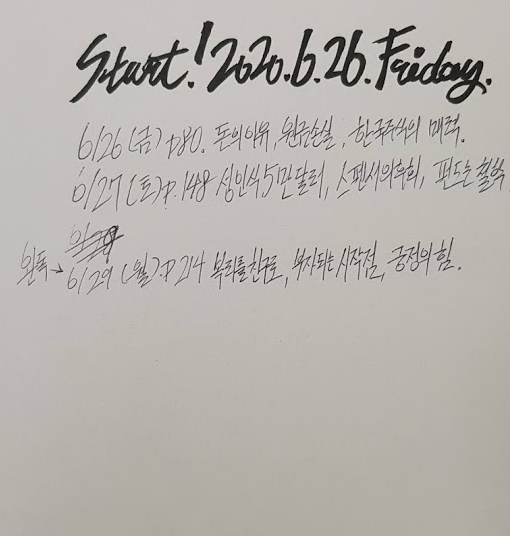 Start! 2020.6.26. Friday.
6/26 (금) p80. 돈의 이유, 원금손실, 한국주식의 매력.
6/27 (토) p.148 성인식 5만달러, 스펜서의 후회, 펀드는 철학
완독 → 6/29 (월). p 214 복리를 친구로, 부자되는 시작점, 긍정의 힘.